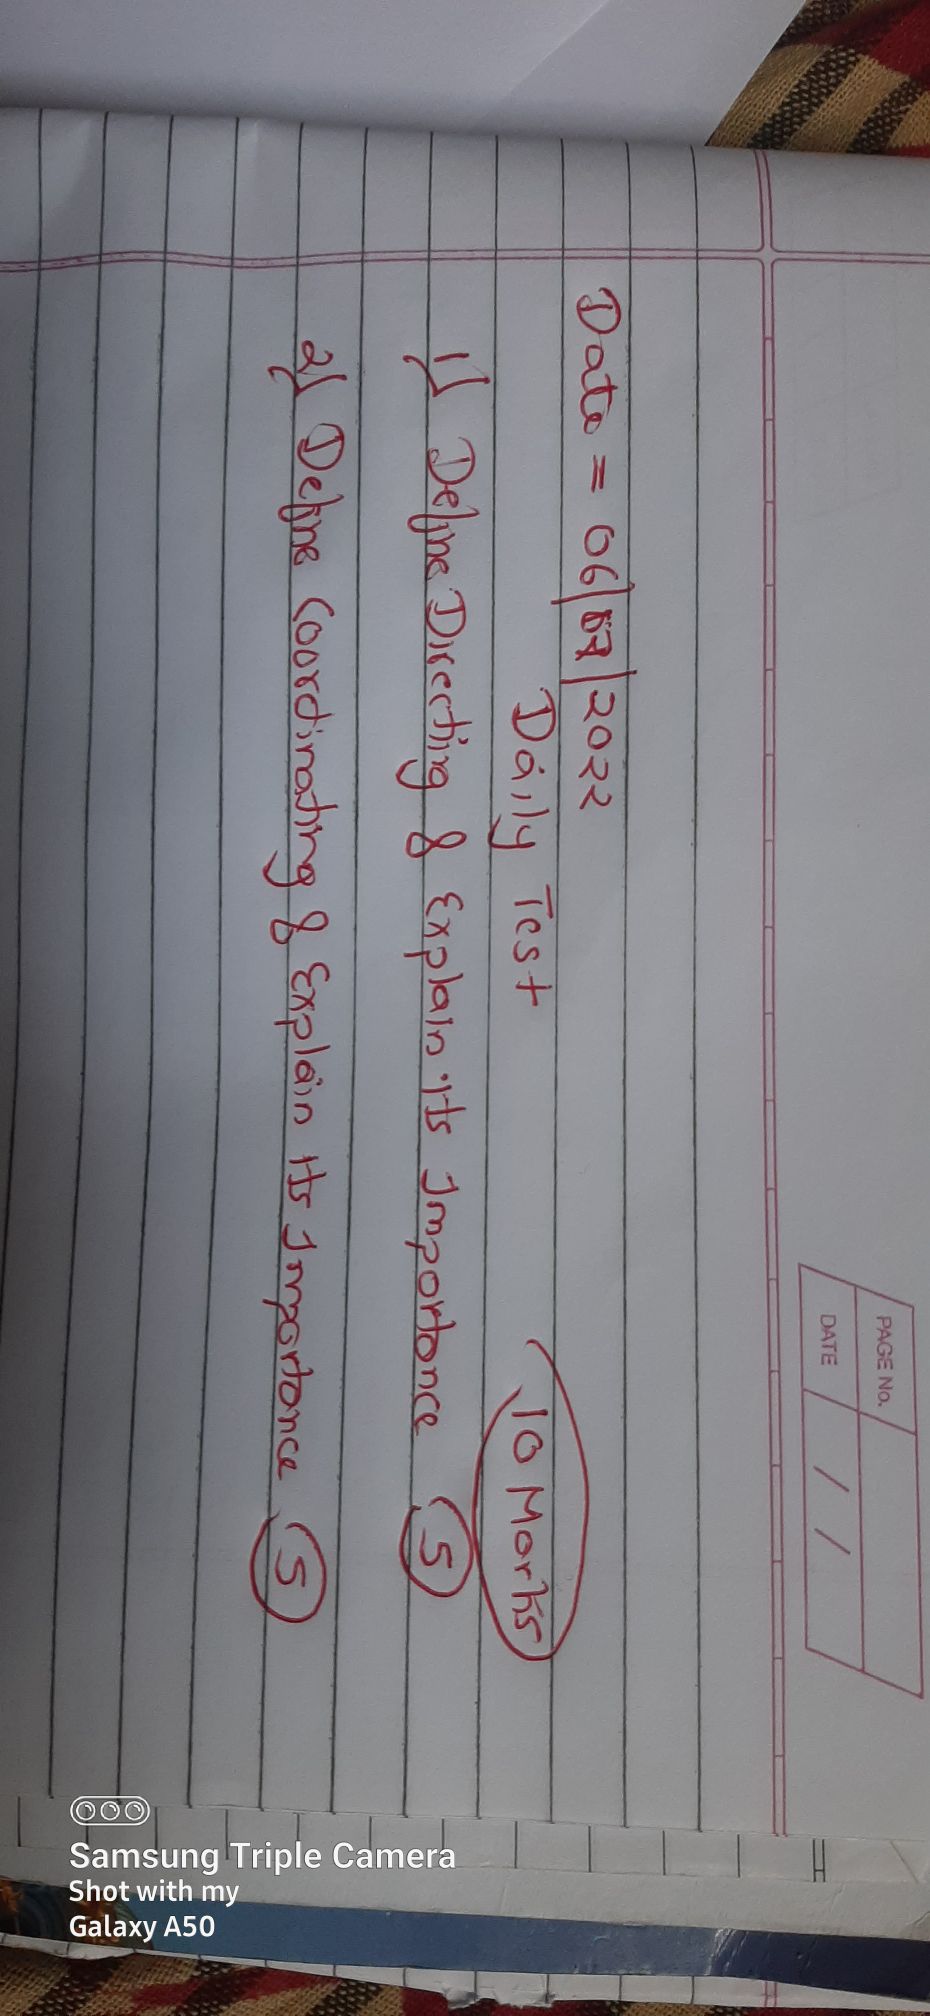 PAGE No.
DATE / /
Date = 06/07/2022
Daily Test 10 Marks
1) Define Directing & Explain its Importance 5
2) Define Coordinating & Explain its Importance 5
Samsung Triple Camera
Shot with my
Galaxy A50